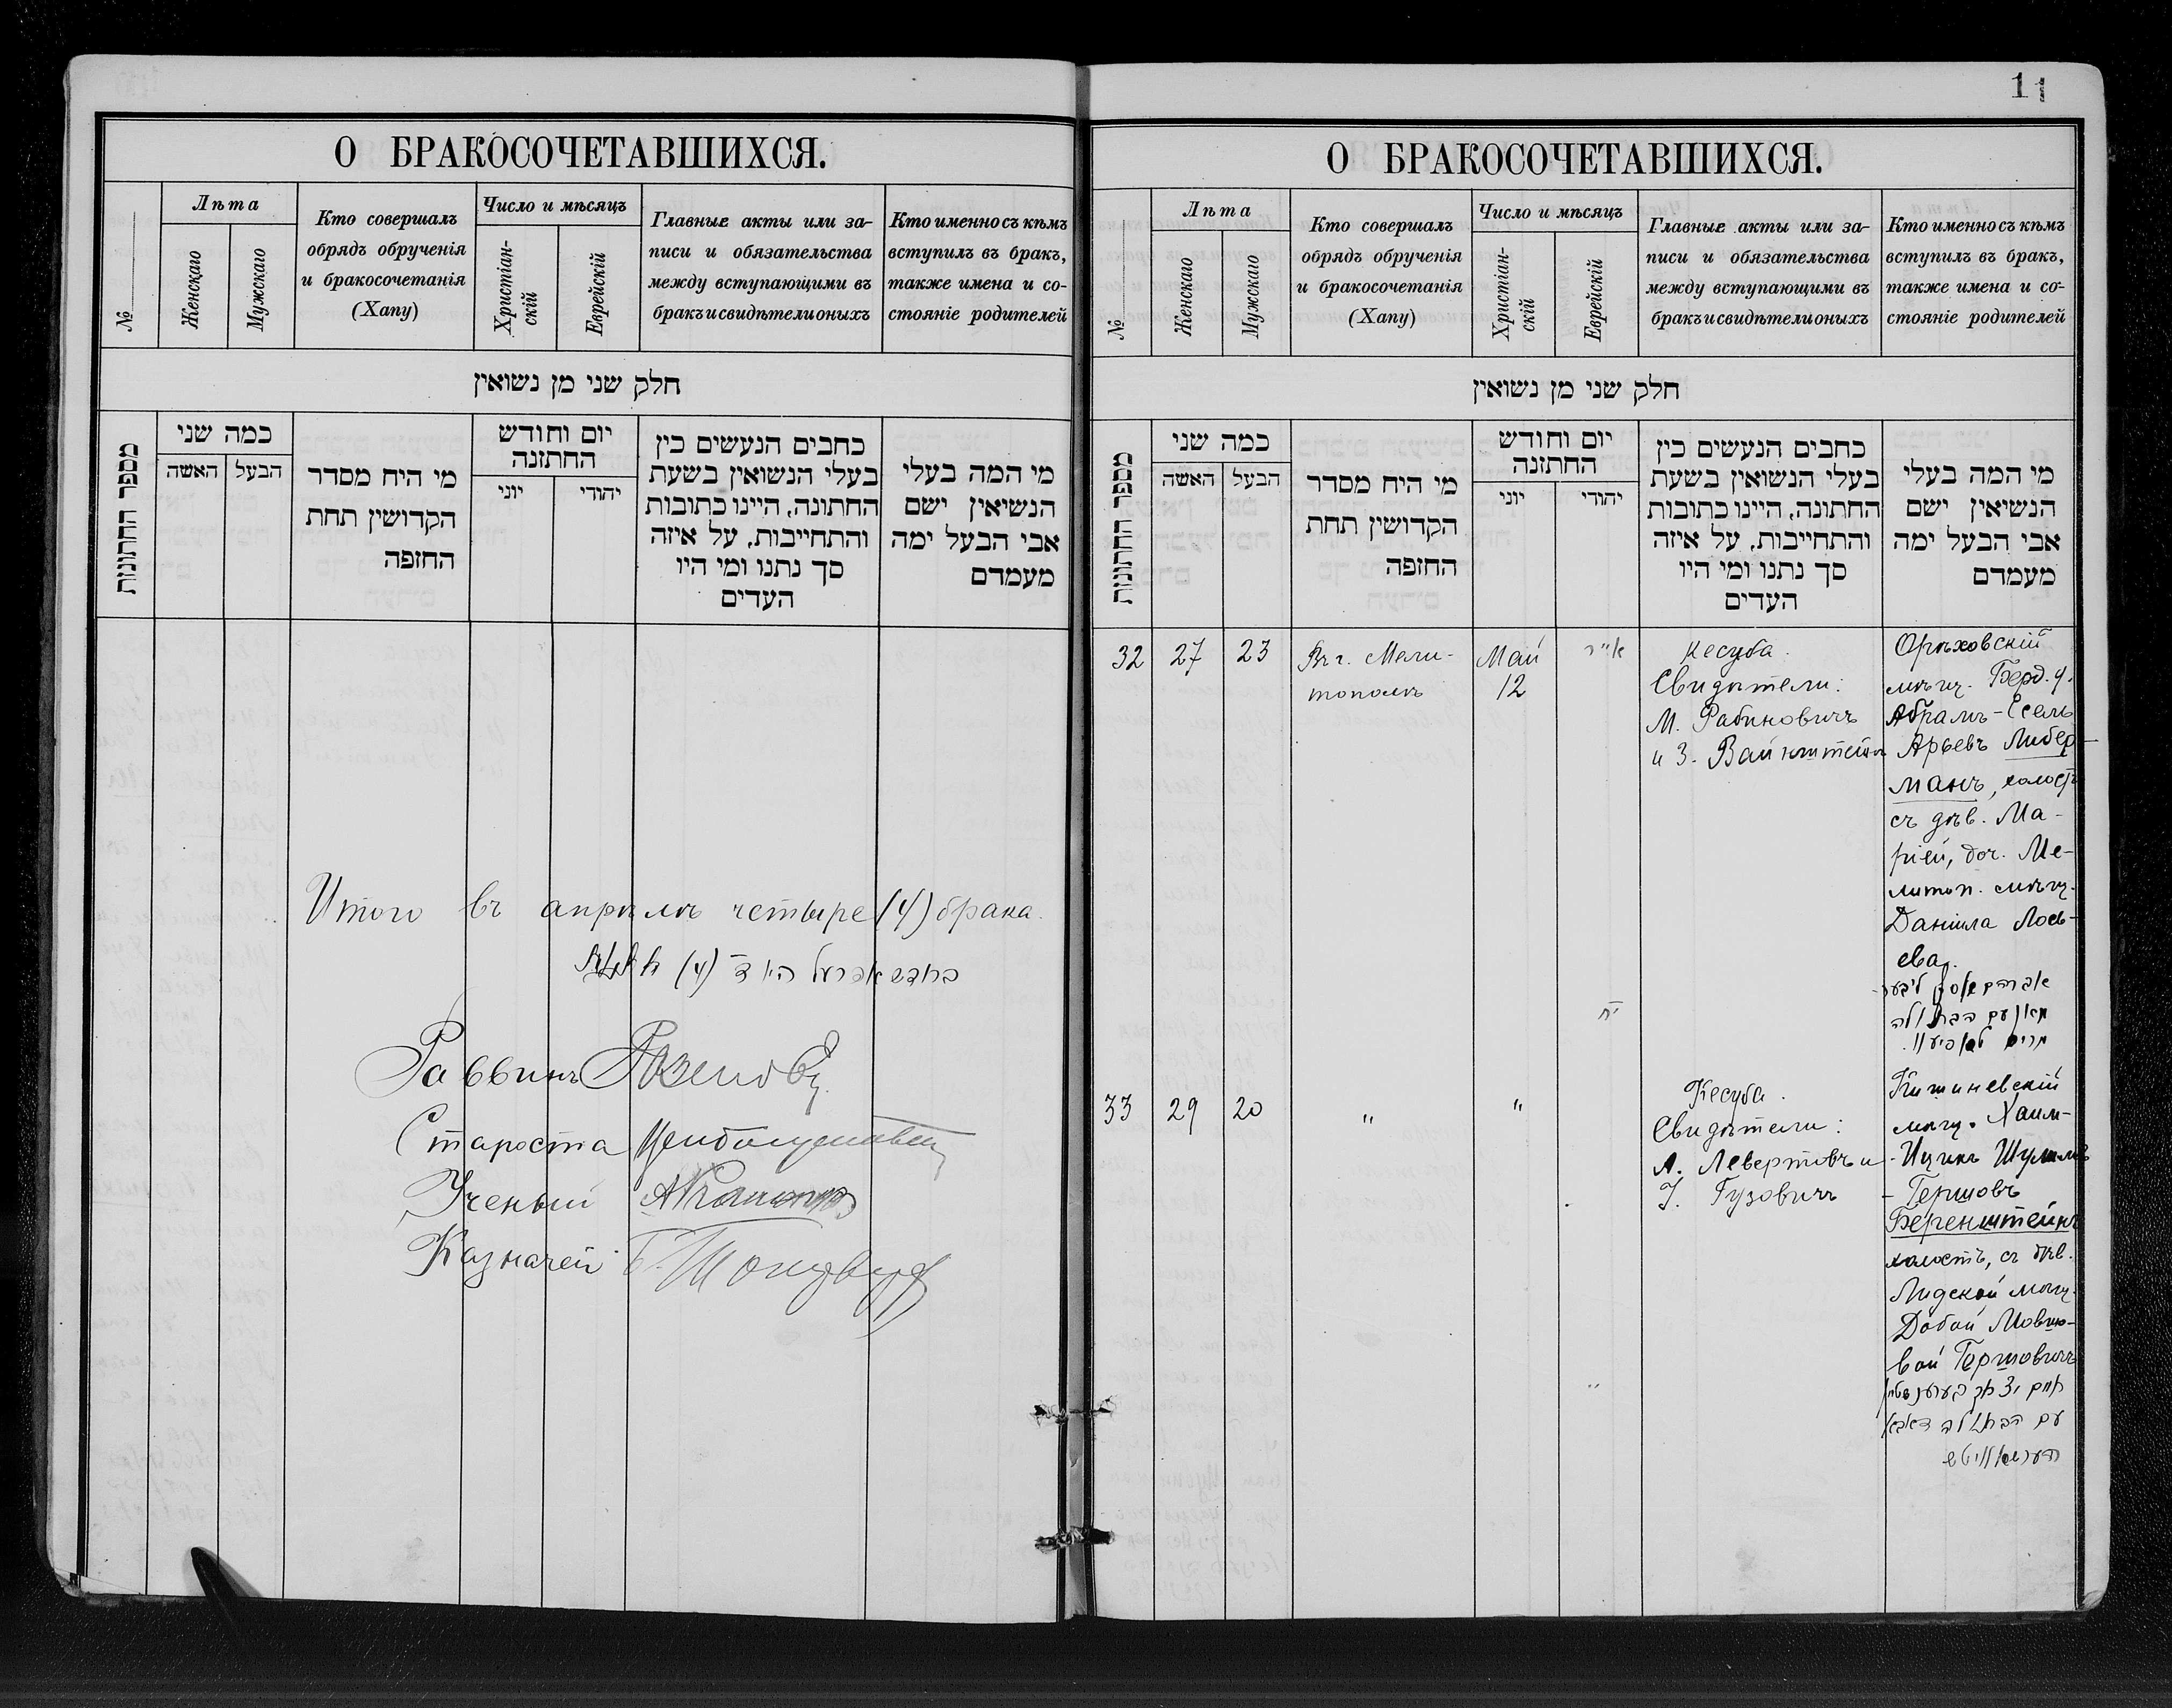 11
О БРАКОСОЧЕТАВШИХСЯ.
№
Лѣта
Женскаго
Мужскаго
Кто совершалъ
обрядъ обрученія
и бракосочетанія
(Хапу)
Число и мѣсяцъ
Христіан-
скій
Еврейскій
Главные акты или за-
писи и обязательства
между вступающими въ
бракъ и свидѣтели оныхъ
Кто именно съ кѣмъ
вступилъ въ бракъ,
также имена и со-
стояніе родителей
חלק שני מן נשואין
מספר החתונות
כמה שני
האשה
הבעל
מי היח מסדר
הקדושין תחת
החופה
יום וחודש
החתונה
יוני
יהודי
כתבים הנעשים בין
בעלי הנשואין בשעת
החתונה, היינו כתובות
והתחייבות, על איזה
סך נתנו ומי היו
העדים
מי המה בעלי
הנשיאין ישם
אבי הבעל ימה
מעמדם
Итого въ апрѣлѣ четыре (4) брака.
בחדש אפריל היו ד (4)
Раввинъ
Староста
Ученый
Казначей
О БРАКОСОЧЕТАВШИХСЯ.
№
Лѣта
Женскаго
Мужскаго
Кто совершалъ
обрядъ обрученія
и бракосочетанія
(Хапу)
Число и мѣсяцъ
Христіан-
скій
Еврейскій
Главные акты или за-
писи и обязательства
между вступающими въ
бракъ и свидѣтели оныхъ
Кто именно съ кѣмъ
вступилъ въ бракъ,
также имена и со-
стояніе родителей
חלק שני מן נשואין
מספר החתונות
כמה שני
האשה
הבעל
מי היח מסדר
הקדושין תחת
החופה
יום וחודש
החתונה
יוני
יהודי
כתבים הנעשים בין
בעלי הנשואין בשעת
החתונה, היינו כתובות
והתחייבות, על איזה
סך נתנו ומי היו
העדים
מי המה בעלי
הנשיאין ישם
אבי הבעל ימה
מעמדם
32
27
23
Въ г. Мели-
тополѣ
Май
12
אייר
יח
Кесуба.
Свидѣтели:
М. Рабиновичъ
и З. Вайнштейнъ
Орѣховскій
мѣщ. Берд. у.
Абрамъ-Есель
Арьевъ Либер-
манъ, холостъ
съ дѣв. Ма-
ріей, доч. Ме-
литоп. мѣщ.
Даніила Лось-
ева.
ליבער-
מאן עם הבתולה
מרים
33
29
20
"
"
"
Кесуба.
Свидѣтели:
А. Левертовъ и
І. Гузовичъ
Кишиневскій
мѣщ. Хаим-
-Ицикъ Шулимъ
-Гершовъ
Беренштейнъ
холостъ, съ дѣв.
Лидской мѣщ.
Добой Мовшо-
вой Гершовичъ
חיים יצחק בערענשטיין
עם הבתולה דאבא